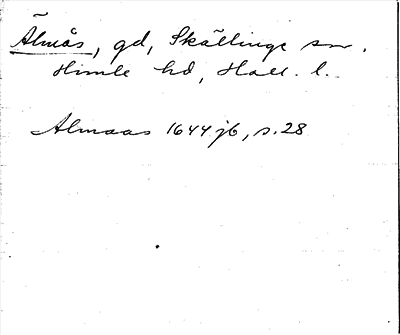 Älmås, gd, Skällinge sn.
Himle hd, Hall. l.
Almaas 1644 jb, s. 28